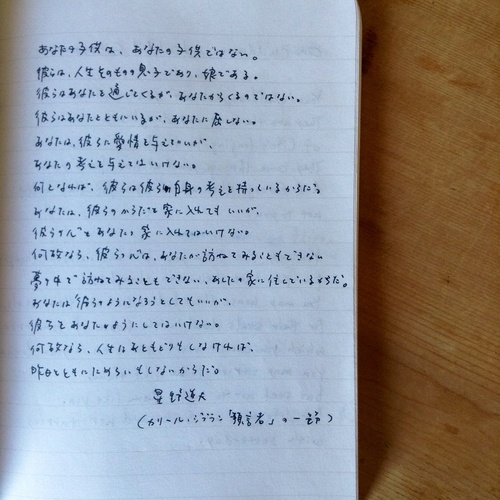 あなたの子供は、あなたの子供ではない。
彼らは、人生そのものの息子であり、娘である。
彼らはあなたを通じてくるが、あなたからくるのではない。
彼らはあなたとともにいるが、あなたに屈しない。
あなたは、彼らに愛情を与えていいが、
あなたの考えを与えてはいけない。
何となれば、彼らは彼ら自身の考えを持っているからだ。
あなたは、彼らのからだを家に入れてもいいが、
彼らの心をあなたの家に入れてはいけない。
何故なら、彼らの心は、あなたが訪ねてみることもできない
夢の中で訪ねてみることもできない、あしたの家に住んでいるからだ。
あなたは彼らのようになろうとしてもいいが、
彼らをあなたのようにしてはいけない。
何故なら、人生はあともどりもしなければ、
昨日とともにためらいもしないからだ。
星野道夫
(カリール・ジブラン「預言者」の一節)